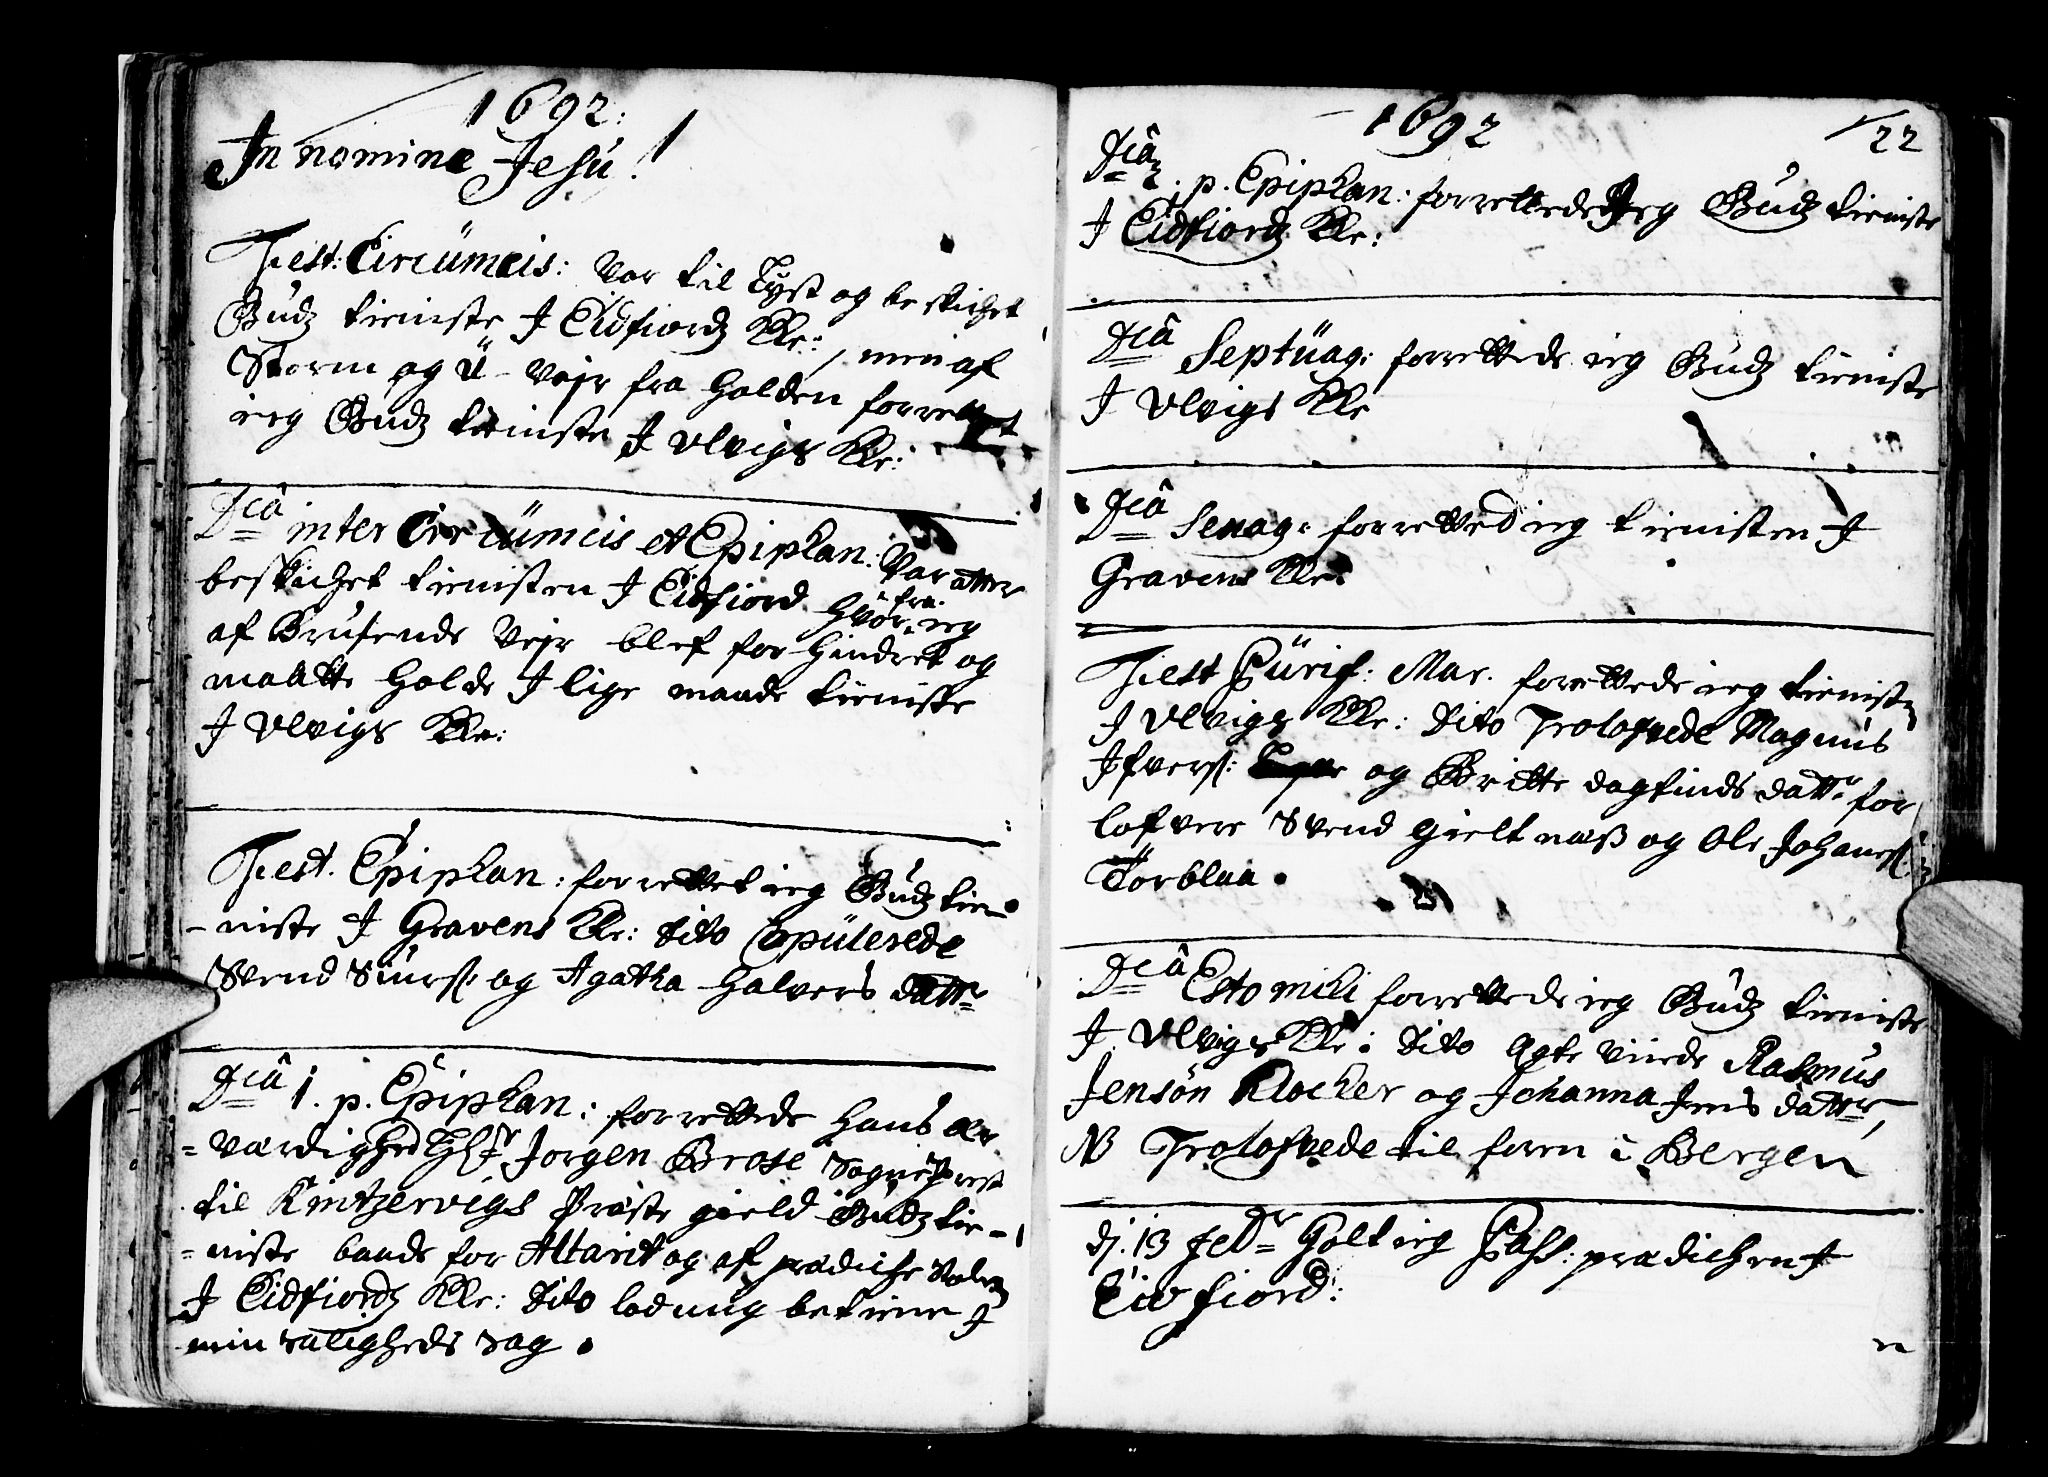 1692:
In nomine Jesu!
Fest: Circumcis: Var til Lyst og beskichet
Gudz tieniste J Eidfiordz Kle:, men af
Storm og U-Vejr fra Holden forrettet
ieg Gudz tieniste J Ulvigs Kle:
Dcâ inter Circumcis et Epiphan: Var atter
beskichet tienisten J Eidfiord hvor fra ieg
af Brusende Vejr blef forhindret og
maatte holde J lige maade tieniste
J Ulvigs Kle:
Fest. Epiphan: forrettet ieg Gudz tie-
-niste J Gravens Kle: dito Copulerede
Svend Siurs: og Agatha Halvors dattr
Dcâ 1. p. Epiphan: forrettede HansÆr
=værdighed Hr Jørgen Brose Sogneprest
til Kintzervigs Præste gield Gudz tie-
=niste baade for Altaret og af prædiche Stolen
J Eidfiordz Kle: dito lod mig betiene J
min saligheds Sag.
1692
22
Dcâ 2. p. Epiphan: forrettede Jeg Gudz tieniste
J Eidfiordz Kle:
Dcâ Septuag: forrettede ieg Gudz tieniste
J Ulvigs Kle
Dcâ Sexag: forretted ieg tienisten J
Gravens Kle:
Fest Purif: Mar. forrettede ieg tieniste
J Ulvigs Kle: dito Trolofvede Magnus
Jfvers: og Britte dagfinds dattr for
lofvere Svend Gieltnæss og Ole Johans:
Torblaa.
Dcâ Estomihi forrettede ieg Gudz tieniste
J Ulvigs Kle: dito Egte viede Rasmus
Jensøn Klocker og Johanna Jens dattr,
NB Trolofvede til forn i Bergen
dj. 13 Febr Holt ieg Pass: prædichen J
Eidfiord: